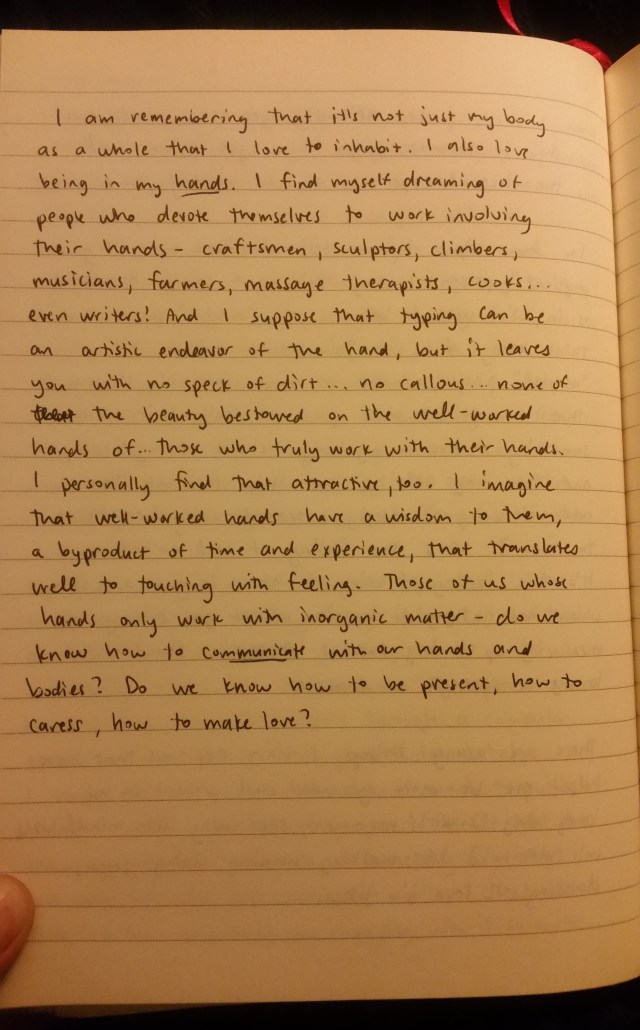 I am remembering that it's not just my body
as a whole that I love to inhabit. I also love
being in my hands. I find myself dreaming of
people who devote themselves to work involving
their hands - craftsmen, sculptors, climbers,
musicians, farmers, massage therapists, cooks...
even writers! And I suppose that typing can be
an artistic endeavor of the hand, but it leaves
you with no speck of dirt... no callous... none of
the beauty bestowed on the well-worked
hands of... those who truly work with their hands.
I personally find that attractive, too. I imagine
that well-worked hands have a wisdom to them,
a byproduct of time and experience, that translates
well to touching with feeling. Those of us whose
hands only work with inorganic matter - do we
know how to communicate with our hands and
bodies? Do we know how to be present, how to
caress, how to make love?